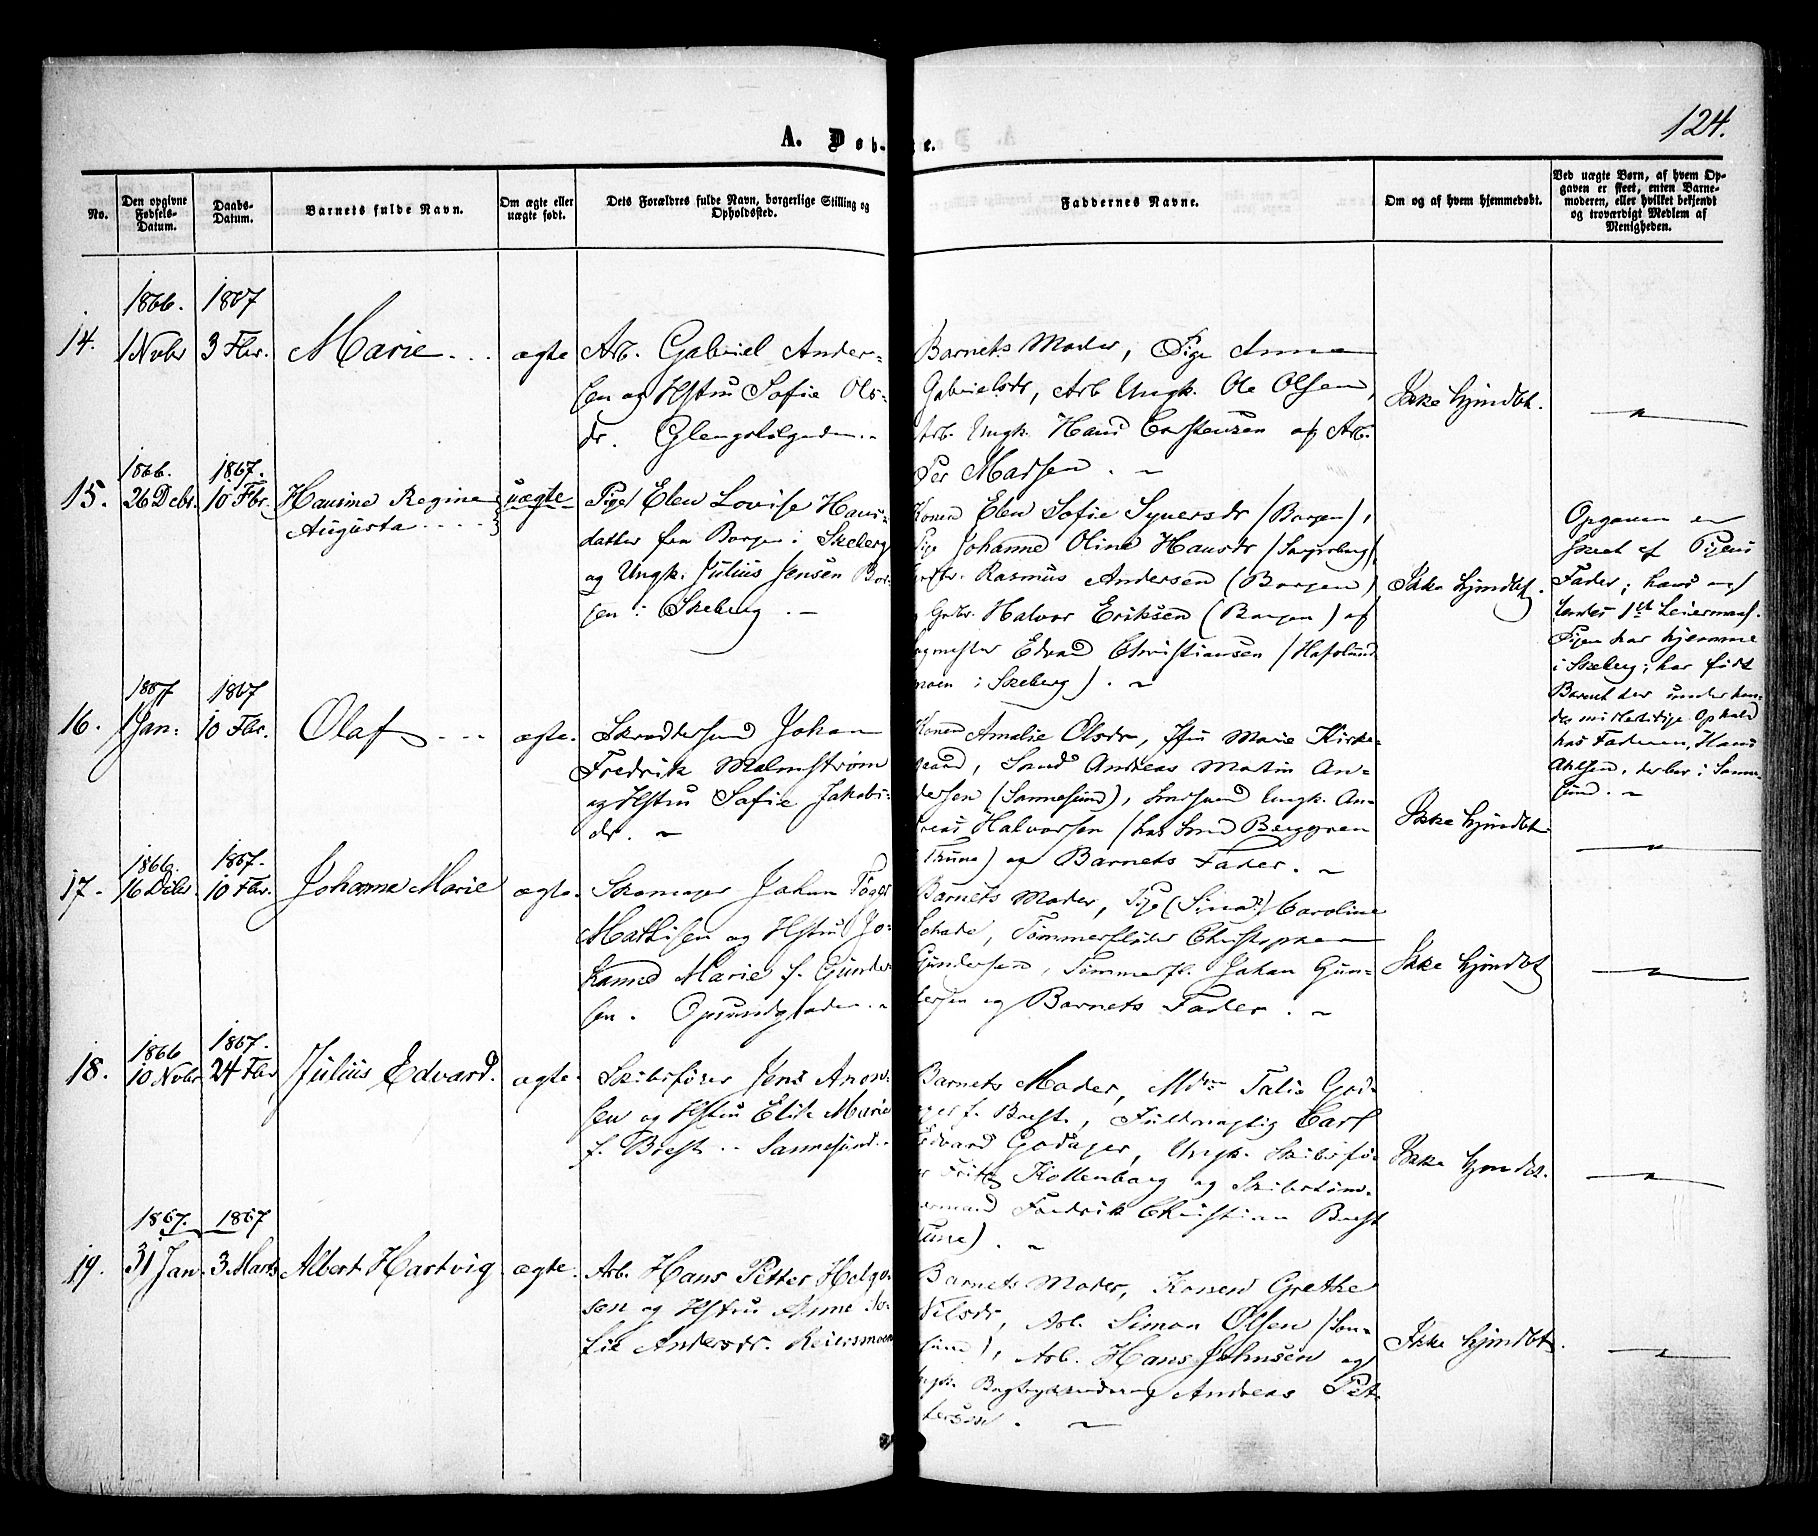 124.
A. Døbte.
No.
Den opgivne Fødsels-Datum.
Daabs-Datum.
Barnets fulde Navn.
Om ægte eller uægte født.
Dets Forældres fulde Navn, borgerlige Stilling og Opholdssted.
Faddernes Navne.
Om og af hvem hjemmedøbt.
Ved uægte Børn, af hvem Opgaven er skeet, enten Barnemoderen, eller hvilket bekjendt og troværdigt Medlem af Menigheden.
14.
1866.
1 Novbr
1867
3 Fbr.
Marie
ægte
Arb. Gabriel Ander-
sen og Hstru Sofie Ols-
dr.
Barnets Moder, Pige Anne
Gabrielsdr, Arb Ungk. Ole Olsen,
Arb. Ungk. Hans Carstensen af Arb.
Per Madsen.
Ikke Hjmdbt.
15.
1866.
26 Debr.
1867.
10 Fbr.
Hansine Regine
Augusta
uægte
Pige Elen Lovise Hans-
datter fra Borgen i Skeberg
og Ungk. Julius Jensen Bor-
gen i Skeberg.
Konen Elen Sofie Syversdr (Borgen),
Pige Johanne Oline Hansdr (Sarpsborg),
Rasmus Andersen (Borgen),
Grbr. Halvor Eriksen (Borgen) af
Edvard Christiansen (Hafslund
moen i Skeberg).
Ikke Hjmdbt.
Opgaven er
skeet af Pigens
Fader; hans og
hendes 1st Leiermaal.
Pigen har hjemme
i Skeberg; har født
Barnet her under hen-
des midlertidige Ophold
hos Faderen, Hans
Ahlsen, der bor i Sanne-
sund.
16.
1867
1 Jan.
1867
10 Fbr.
Olaf
ægte.
Skræddersvend Johan
Fredrik Malmstrøm
og Hstru Sofie Jakobs-
dr.
Konen Amalie Olsdr, Jfru Marie Kirke-
gaard, Andreas Martin An-
dersen (Sannesund), Smedsvend Ungk. An-
dreas Halvorsen (hos Smed Berggren
Thune) og Barnets Fader.
Ikke Hjmdbt
17.
1866.
16 Debr.
1867.
10 Fbr.
Johanne Marie
ægte.
Skomager Johan Tøger
Mathisen og Hstru Jo-
hanne Marie f. Gunder-
sen. Opsundgloden.
Barnets Moder, Pige (Sina?) Caroline
Schade, Tømmerfløder Christopher
Gundersen, Tømmerfl. Johan Gun-
dersen og Barnets Fader.
Ikke Hjmdbt
18.
1866
10 Nvbr
1867.
24 Fbr
Julius Edvard.
ægte.
Skibsfører Jens Anon-
sen og Hstru Elise Marie
f. Brest Sannesund.
Barnets Moder, Talia God-
ager f. Brest, Fuldmægtig Carl
Edvard Godager, Ungk. Skibsfø-
rer Fritz Kollenborg og Skibstøm-
mermand Fredrik Christian Brest
(Tune).
Ikke Hjmdbt.
19.
1867.
31 Jan.
1867
3 Marts
Albert Hartvig
ægte.
Arb. Hans Petter Helge-
sen og Hstru Anne So-
fie Andersdr. Reiersmoen
Barnets Moder, Konen Grethe
Nilsdr, Arb. Simon Olsen (San-
sund), Arb. Hans Johnsen og
Ungk. Andreas Pet-
tersen.
Ikke Hjmdbt.